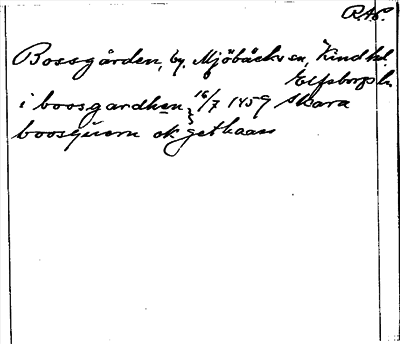 R.A.P.
Bossgården, by. Mjöbäcks sn, Kind hd.
Elfsborgs l.
i boosgardhen } 16/7 1459 Skara
boosquern ok gethaas